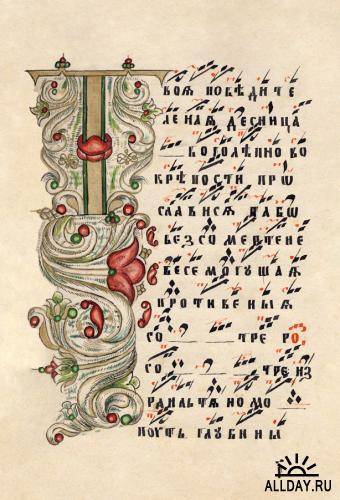 Твоѧ побѣдите
ленаѧ десница
боголѣпно во
крѣпости прѡ
слависѧ табѡ
безсомертене
весемогушаѧ
противеныѧ
со тре
со тре из
раильтѧномо
поуть глубины
ALLDAY.RU